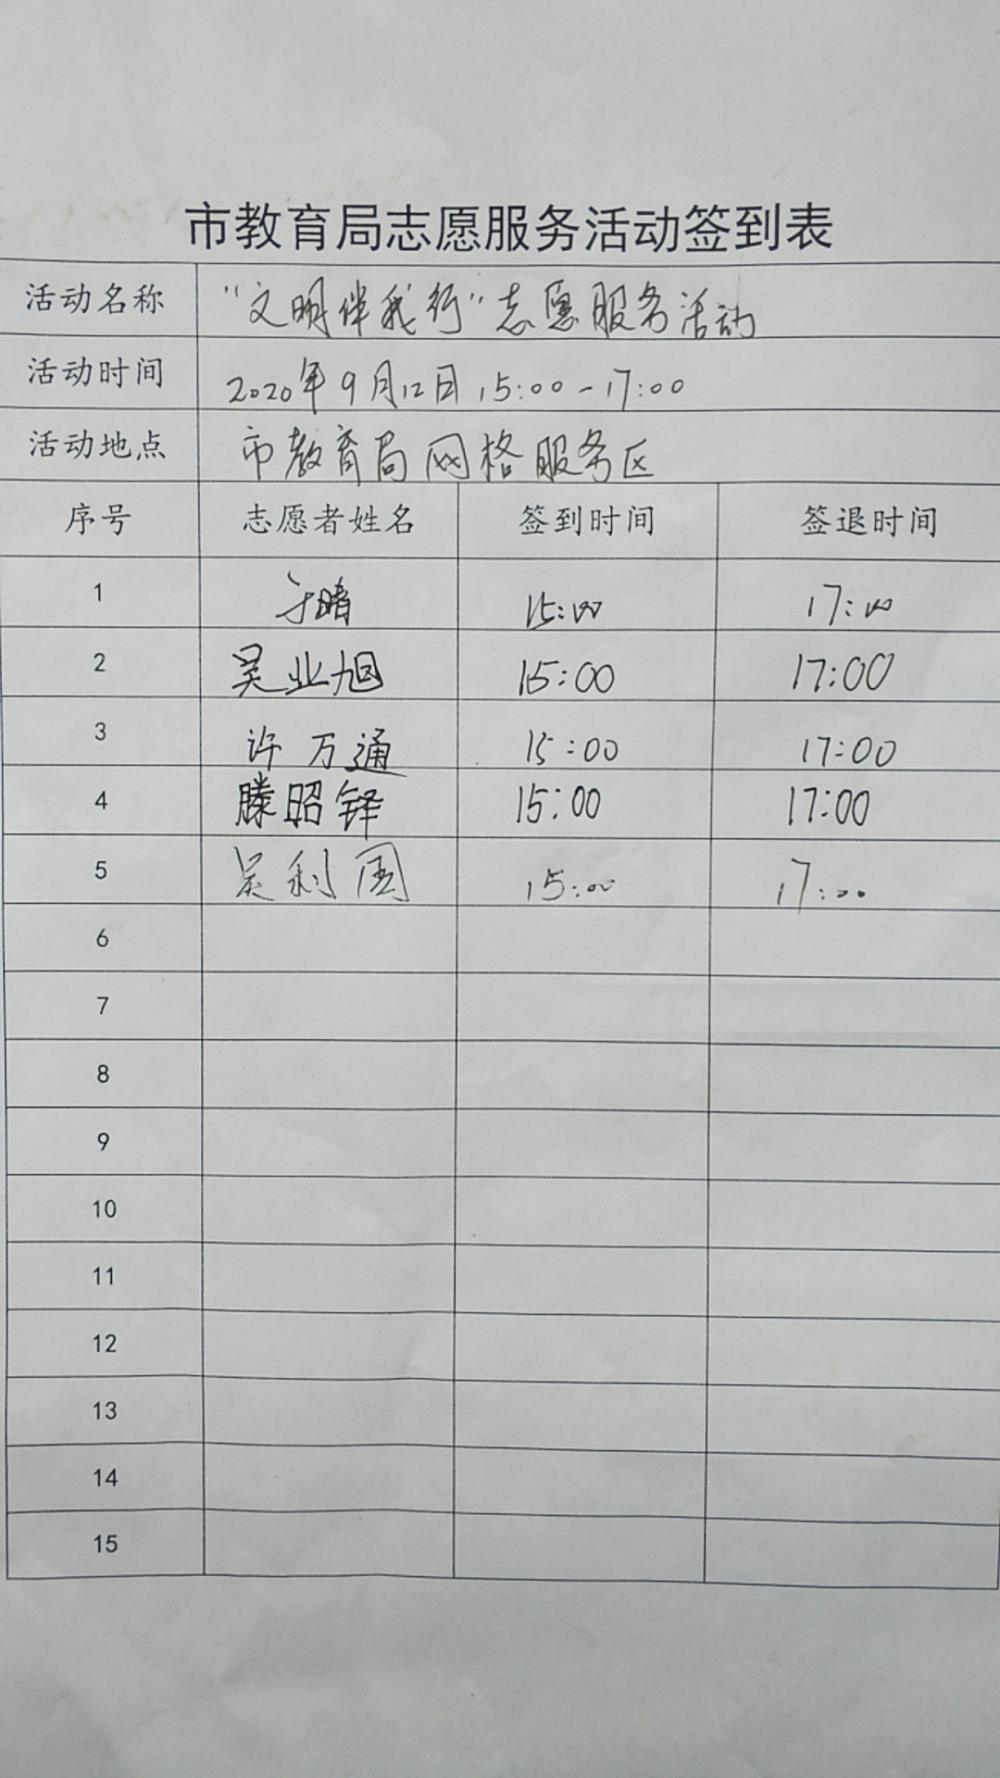 市教育局志愿服务活动签到表
活动名称 “文明伴我行”志愿服务活动
活动时间 2020年9月12日 15:00-17:00
活动地点 市教育局网格服务区
序号 志愿者姓名 签到时间 签退时间
1 于晴 15:00 17:00
2 吴业旭 15:00 17:00
3 许万通 15:00 17:00
4 滕昭铎 15:00 17:00
5 吴利国 15:00 17:00
6
7
8
9
10
11
12
13
14
15